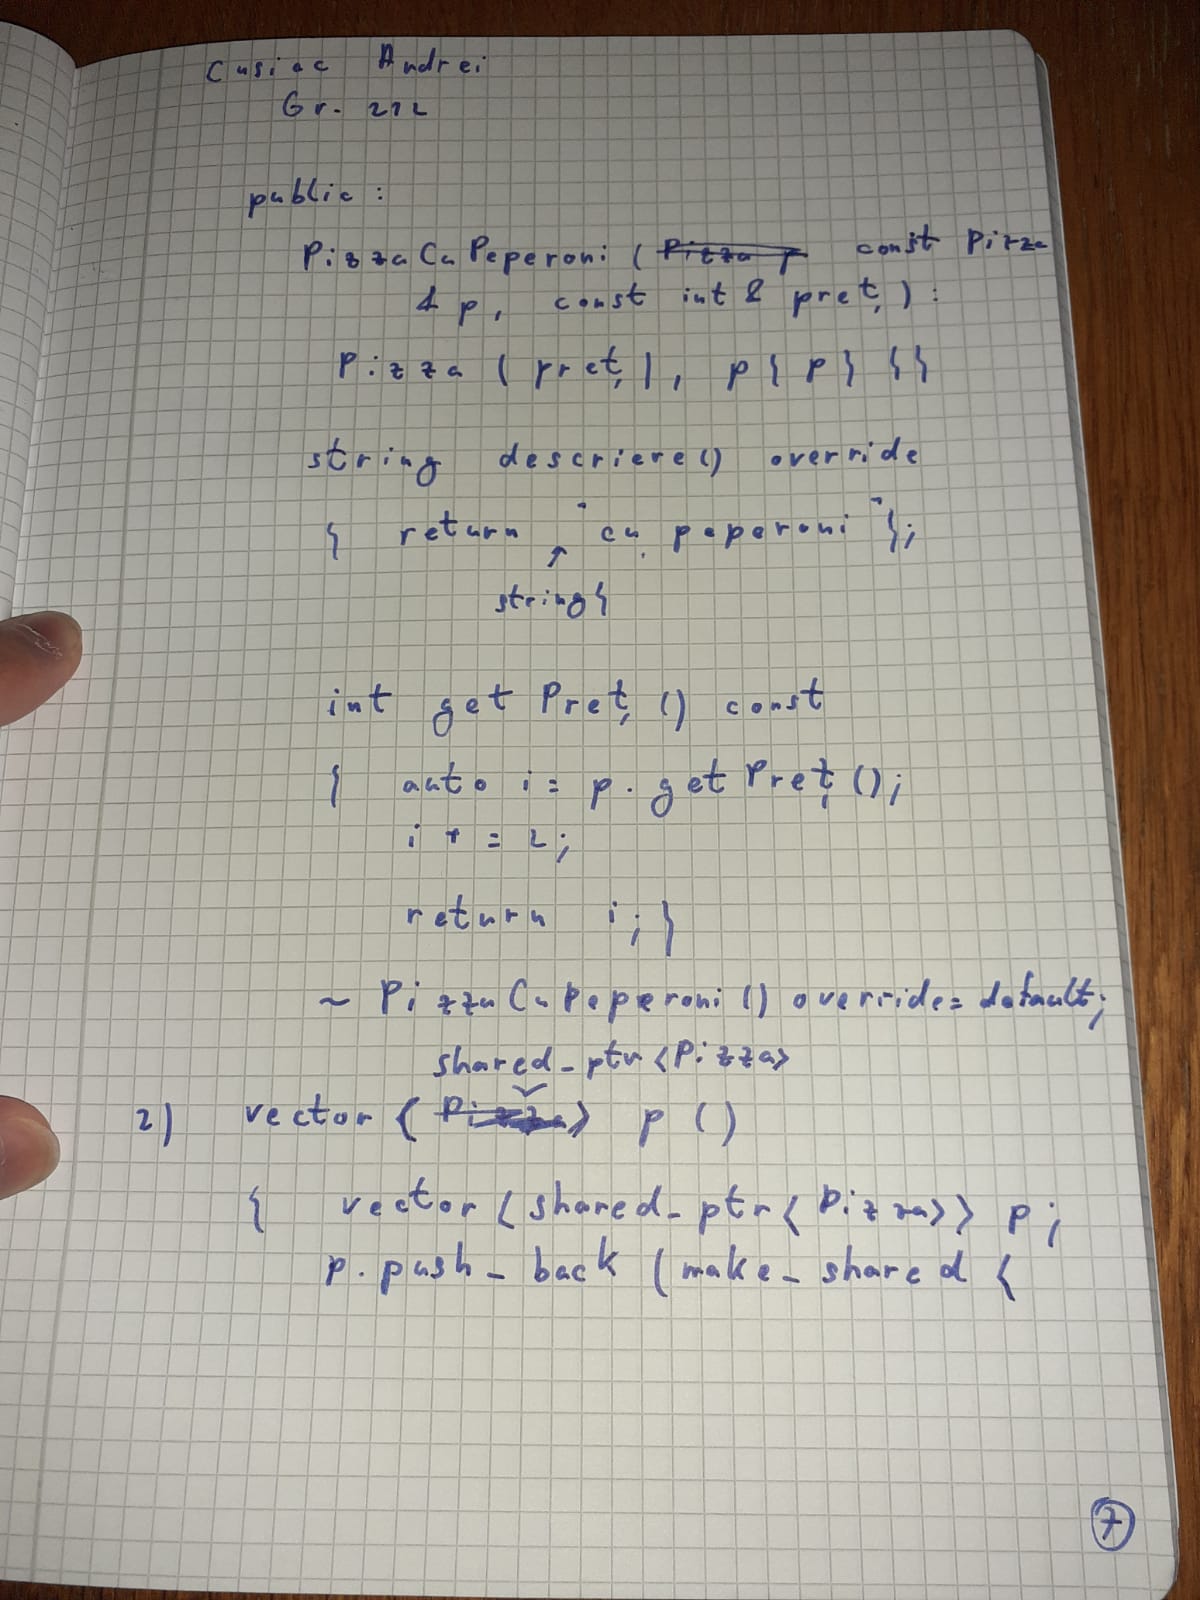 Cusiac Andrei
Gr. 212
public :
PizzaCuPeperoni ( Pizza p const Pizza
& p, const int & preț ) :
Pizza ( preț ), p { p } { }
string descriere() override
{ return "cu peperoni" };
↑
string{
int getPreț () const
{ auto i = p. getPreț ();
i += 2;
return i; }
~ PizzaCuPeperoni () override = default;
shared_ptr <Pizza>
2) vector < Pizza > p ()
{ vector < shared_ptr < Pizza >> p;
p. push_back ( make_shared <
7